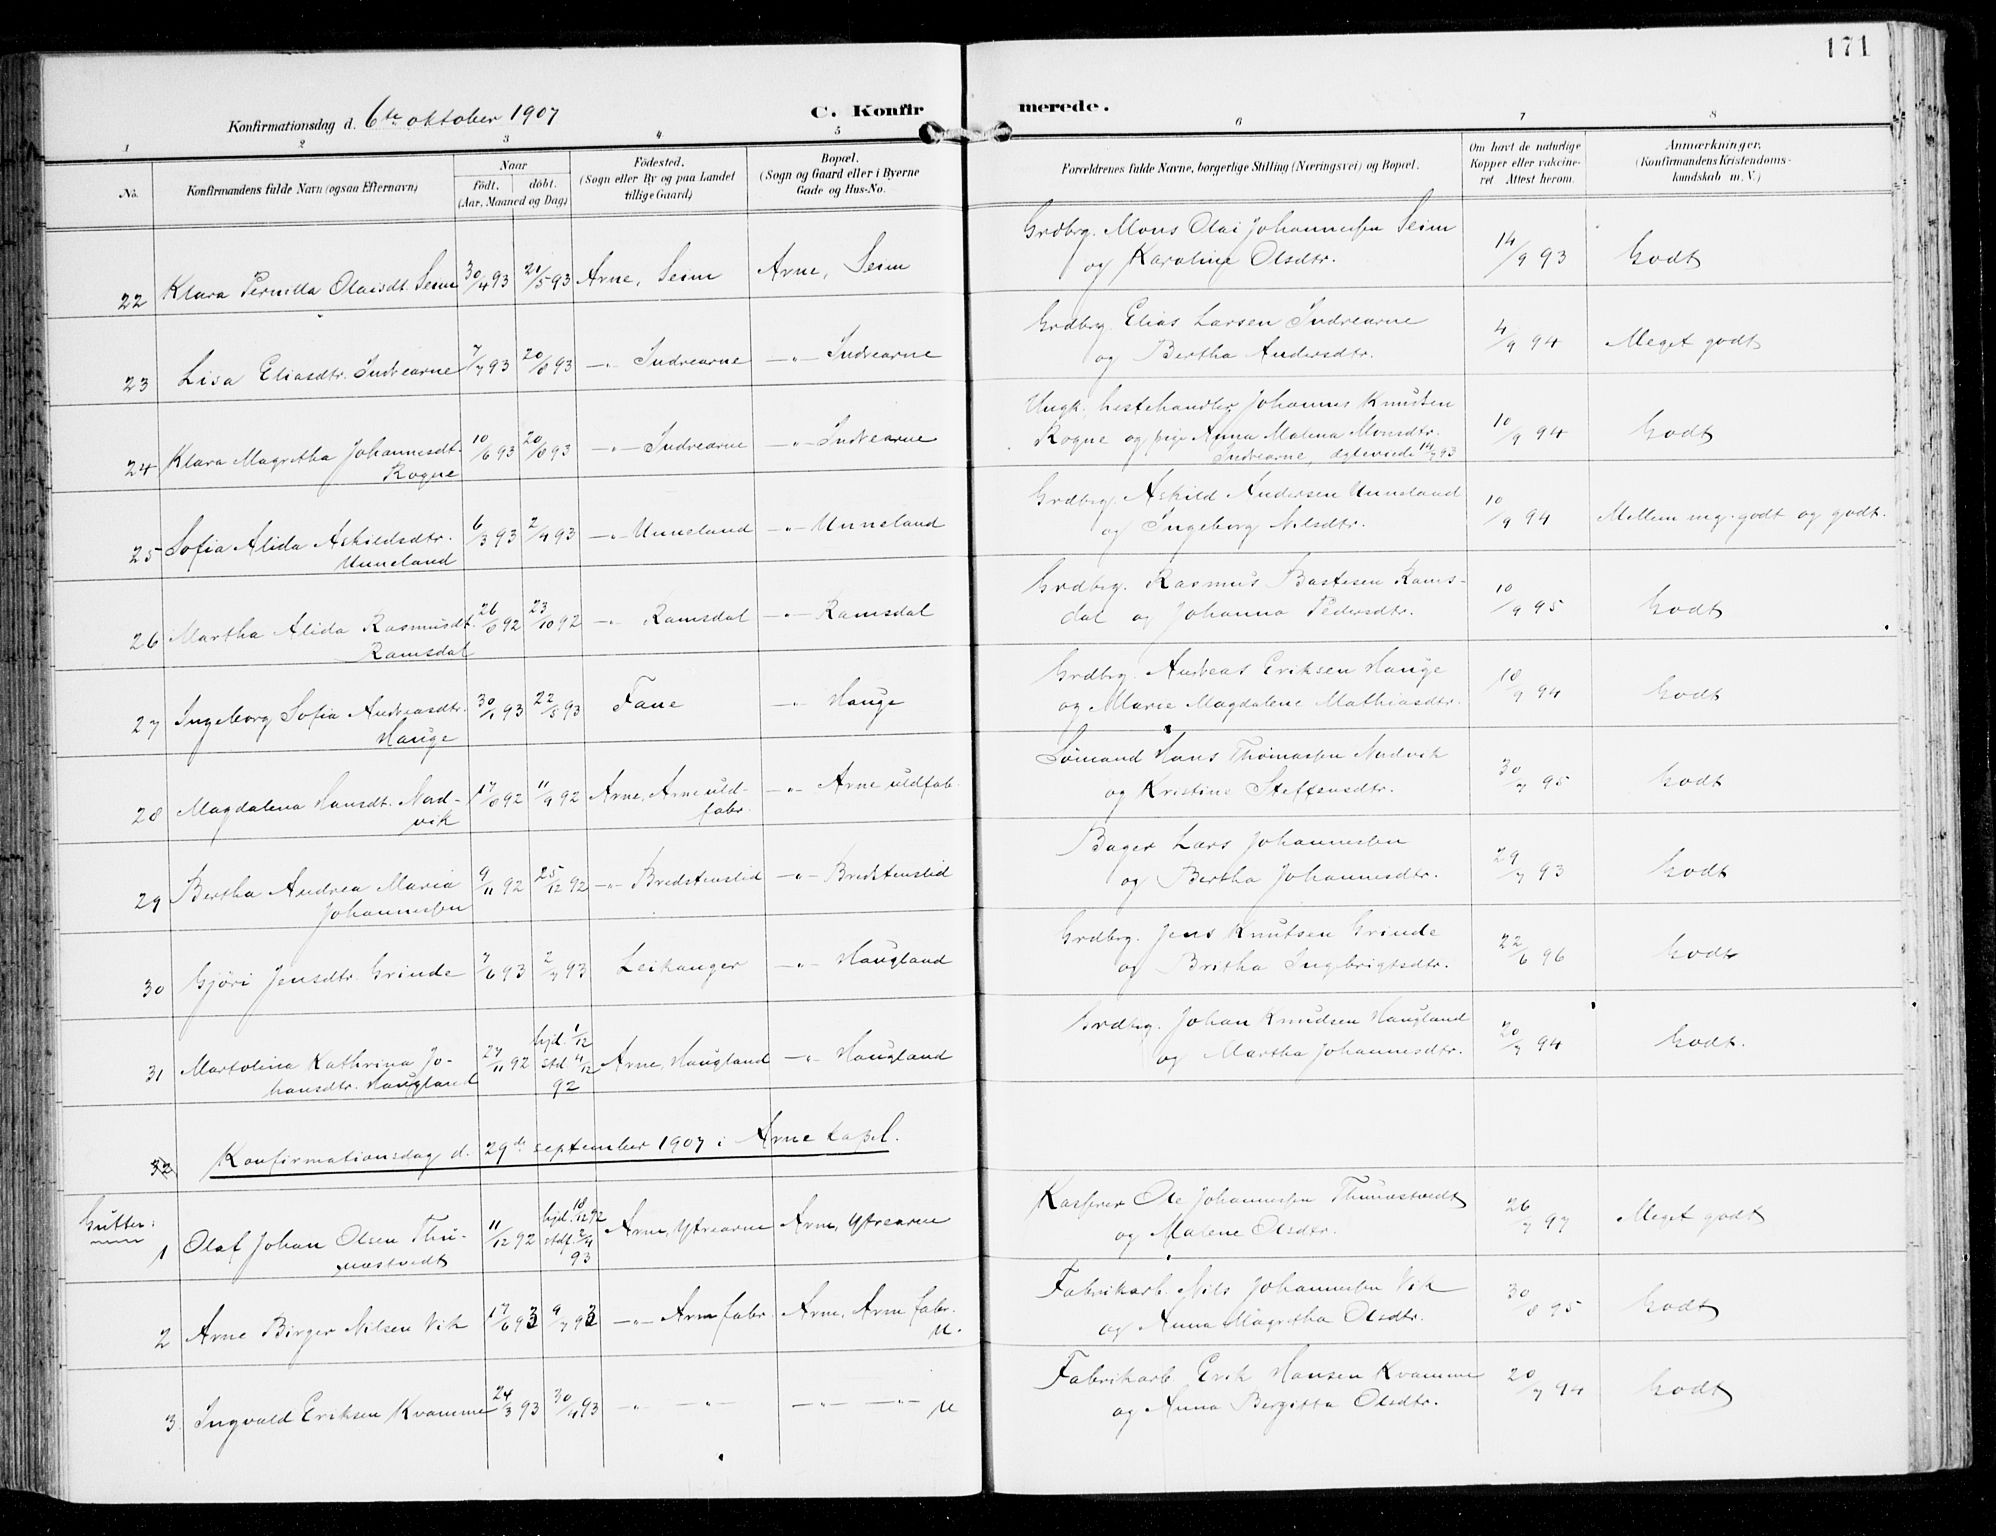 171
Konfirmationsdag d. 6te oktober 1907
C. Konfirmerede.
1 2 3 4 5 6 7 8
No.
Konfirmandens fulde Navn (ogsaa Efternavn)
Naar
födt. döbt.
(Aar, Maaned og Dag)
Födested.
(Sogn eller By og paa Landet
tillige Gaard)
Bopæl.
(Sogn og Gaard eller i Byerne
Gade og Hus-No.
Forældrenes fulde Navne, borgerlige Stilling (Næringsvei) og Bopæl.
Om havt de naturlige
Kopper eller vakcine-
ret. Attest herom.
Anmærkninger.
(Konfirmandens Kristendoms-
kundskab m. V.)
22 Klara Pernilla Olaisdt. Seim 30/4 93 21/5 93 Arne, Seim Arne, Seim
Grdbrg. Mons Olai Johannessen Seim
og Karoline Olsdtr. 14/9 93 Godt
23 Lisa Eliasdtr. Indrearne 7/7 93 20/8 93 -"- Indrearne -"- Indrearne
Grdbrg. Elias Larsen Indrearne
og Bertha Andersdtr. 4/9 94 Meget godt
24 Klara Magretha Johannesdt.
Rogne 10/6 93 20/8 93 -"- Indrearne -"- Indrearne
Ungk. hestehandler Johannes Knutsen
Rogne og pige Anna Malena Monsdtr.
Indrearne, ægteviede 14/7 93 10/9 94 Godt
25 Sofia Alida Askildsdtr.
Unneland 6/3 93 2/4 93 -"- Unneland -"- Unneland
Grdbrg. Askild Andersen Unneland
og Ingeborg Nilsdtr. 10/9 94 Mellem meg. godt og godt.
26 Martha Alida Rasmusdt.
Ramsdal 26/8 92 23/10 92 -"- Ramsdal -"- Ramsdal
Grdbrg. Rasmus Bastesen Rams-
dal og Johanna Pedersdtr. 10/9 95 Godt
27 Ingeborg Sofia Andreasdtr.
Hauge 30/1 93 22/5 93 Fane -"- Hauge
Grdbrg. Andreas Eriksen Hauge
og Marie Magdalene Mathiasdtr. 10/9 94 Godt
28 Magdalena Hansdt. Nad-
vik 17/8 92 11/9 92 Arne, Arne uld-
fabr. -"- Arne uldfab.
Sömand Hans Thomassen Nadvik
og Kristine Steffensdtr. 30/7 95 Godt
29 Bertha Andrea Maria
Johannessen 9/11 92 25/12 92 -"- Bredstenslid -"- Bredstenslid
Bager Lars Johannessen
og Bertha Johannesdtr. 29/7 93 Godt
30 Gjöri Jensdtr. Grinde 7/6 93 2/7 93 Leikanger -"- Haugland
Grdbrg. Jens Knutsen Grinde
og Britha Ingebrigtsdtr. 22/6 96 Godt
31 Martolina Kathrina Jo-
hansdtr. Haugland 27/11 92 hjd. 1/12
std 4/12
92 Arne, Haugland -"- Haugland
Grdbrg. Johan Knudsen Haugland
og Martha Johannesdtr. 20/7 94 Godt.
32 Konfirmationsdag d. 29de september 1907 i Arne kapel.
Gutter:
1 Olaf Johan Olsen Thu-
næstvedt 11/12 92 hjd. 18/12 92
stdf. 2/4
93 Arne, Ytrearne Arne, Ytrearne
Kasserer Ole Johannessen Thunæstvedt
og Malene Olsdtr. 26/7 97 Meget godt
2 Arne Birger Nilsen Vik 17/6 93 9/7 93 -"- Arne fabr. Arne, Arne fabr.
M.
Fabrikarb. Nils Johannessen Vik
og Anna Magretha Olsdtr. 30/8 95 Godt
3 Ingvald Eriksen Kvamme 24/3 93 30/4 93 -"- -"- -"- -"-
M
Fabrikarb Erik Hansen Kvamme
og Anna Bergitta Olsdtr. 20/7 94 Godt